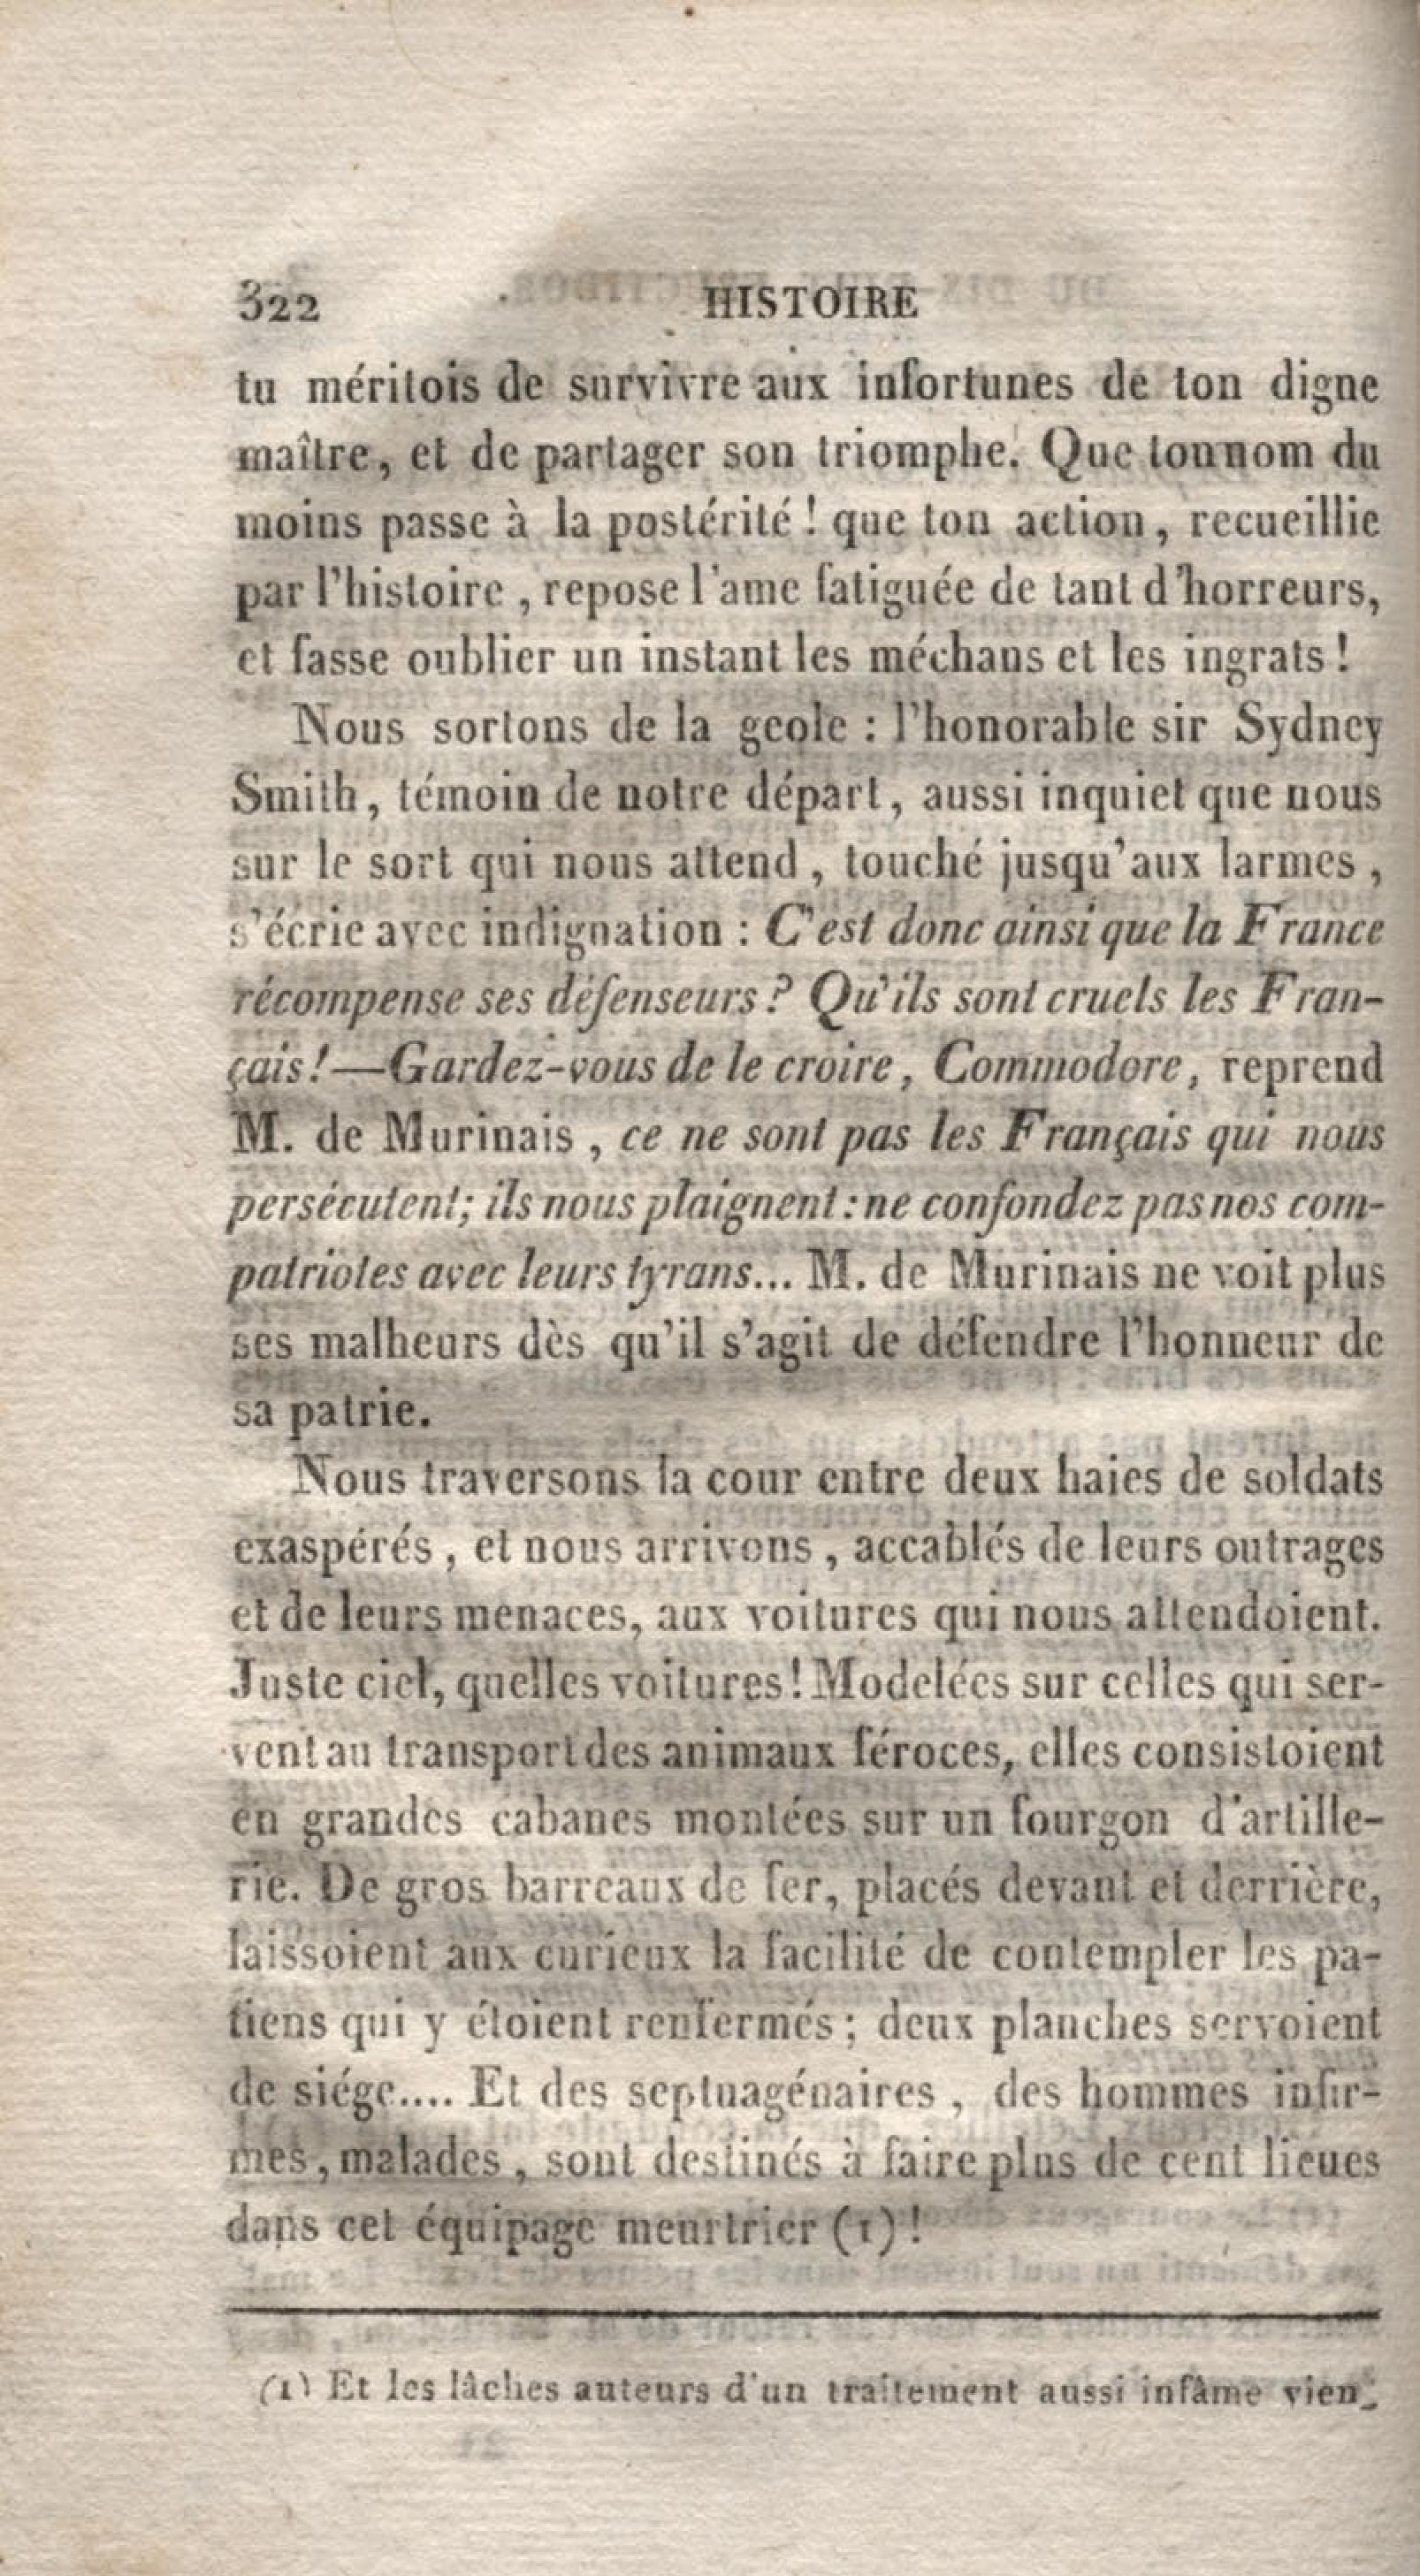 322 HISTOIRE
tu méritois de survivre aux infortunes de ton digne
maître, et de partager son triomphe. Que ton nom du
moins passe à la postérité ! que ton action, recueillie
par l'histoire , repose l'ame fatiguée de tant d'horreurs,
et fasse oublier un instant les méchans et les ingrats !
Nous sortons de la geole : l'honorable sir Sydney
Smith, témoin de notre départ, aussi inquiet que nous
sur le sort qui nous attend , touché jusqu'aux larmes ,
s'écrie avec indignation : C'est donc ainsi que la France
récompense ses défenseurs ? Qu'ils sont cruels les Fran-
çais !—Gardez-vous de le croire, Commodore, reprend
M. de Murinais , ce ne sont pas les Français qui nous
persécutent; ils nous plaignent : ne confondez pas nos com-
patriotes avec leurs tyrans... M. de Murinais ne voit plus
ses malheurs dès qu'il s'agit de défendre l'honneur de
sa patrie.
Nous traversons la cour entre deux haies de soldats
exaspérés , et nous arrivons , accablés de leurs outrages
et de leurs menaces, aux voitures qui nous attendoient.
Juste ciel, quelles voitures ! Modelées sur celles qui ser-
vent au transport des animaux féroces, elles consistoient
en grandes cabanes montées sur un fourgon d'artille-
rie. De gros barreaux de fer, placés devant et derrière,
laissoient aux curieux la facilité de contempler les pa-
tiens qui y étoient renfermés ; deux planches servoient
de siége.... Et des septuagénaires , des hommes infir-
mes, malades , sont destinés à faire plus de cent lieues
dans cet équipage meurtrier (1) !
(1) Et les lâches auteurs d'un traitement aussi infâme vien-